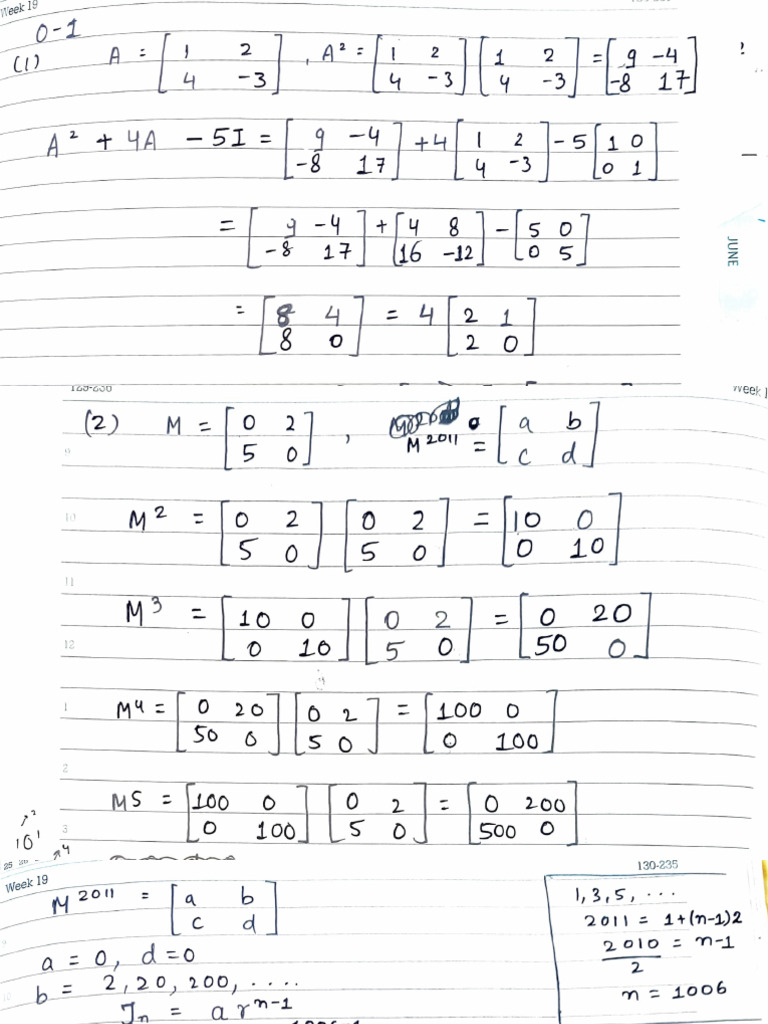 Week 19
Q-1
(1) A = [1 2; 4 -3], A² = [1 2; 4 -3] [1 2; 4 -3] = [9 -4; -8 17]
A² + 4A - 5I = [9 -4; -8 17] + 4 [1 2; 4 -3] - 5 [1 0; 0 1]
= [9 -4; -8 17] + [4 8; 16 -12] - [5 0; 0 5]
JUNE
= [8 4; 8 0] = 4 [2 1; 2 0]
(2) M = [0 2; 5 0], M²⁰¹¹ = [a b; c d]
9
10 M² = [0 2; 5 0] [0 2; 5 0] = [10 0; 0 10]
11
M³ = [10 0; 0 10] [0 2; 5 0] = [0 20; 50 0]
12
1 M⁴ = [0 20; 50 0] [0 2; 5 0] = [100 0; 0 100]
2
M5 = [100 0; 0 100] [0 2; 5 0] = [0 200; 500 0]
3
130-235
Week 19
M²⁰¹¹ = [a b; c d]
a = 0, d = 0
b = 2, 20, 200, ....
Tn = a rⁿ⁻¹
1, 3, 5, ...
2011 = 1+(n-1)2
2010/2 = n-1
n = 1006